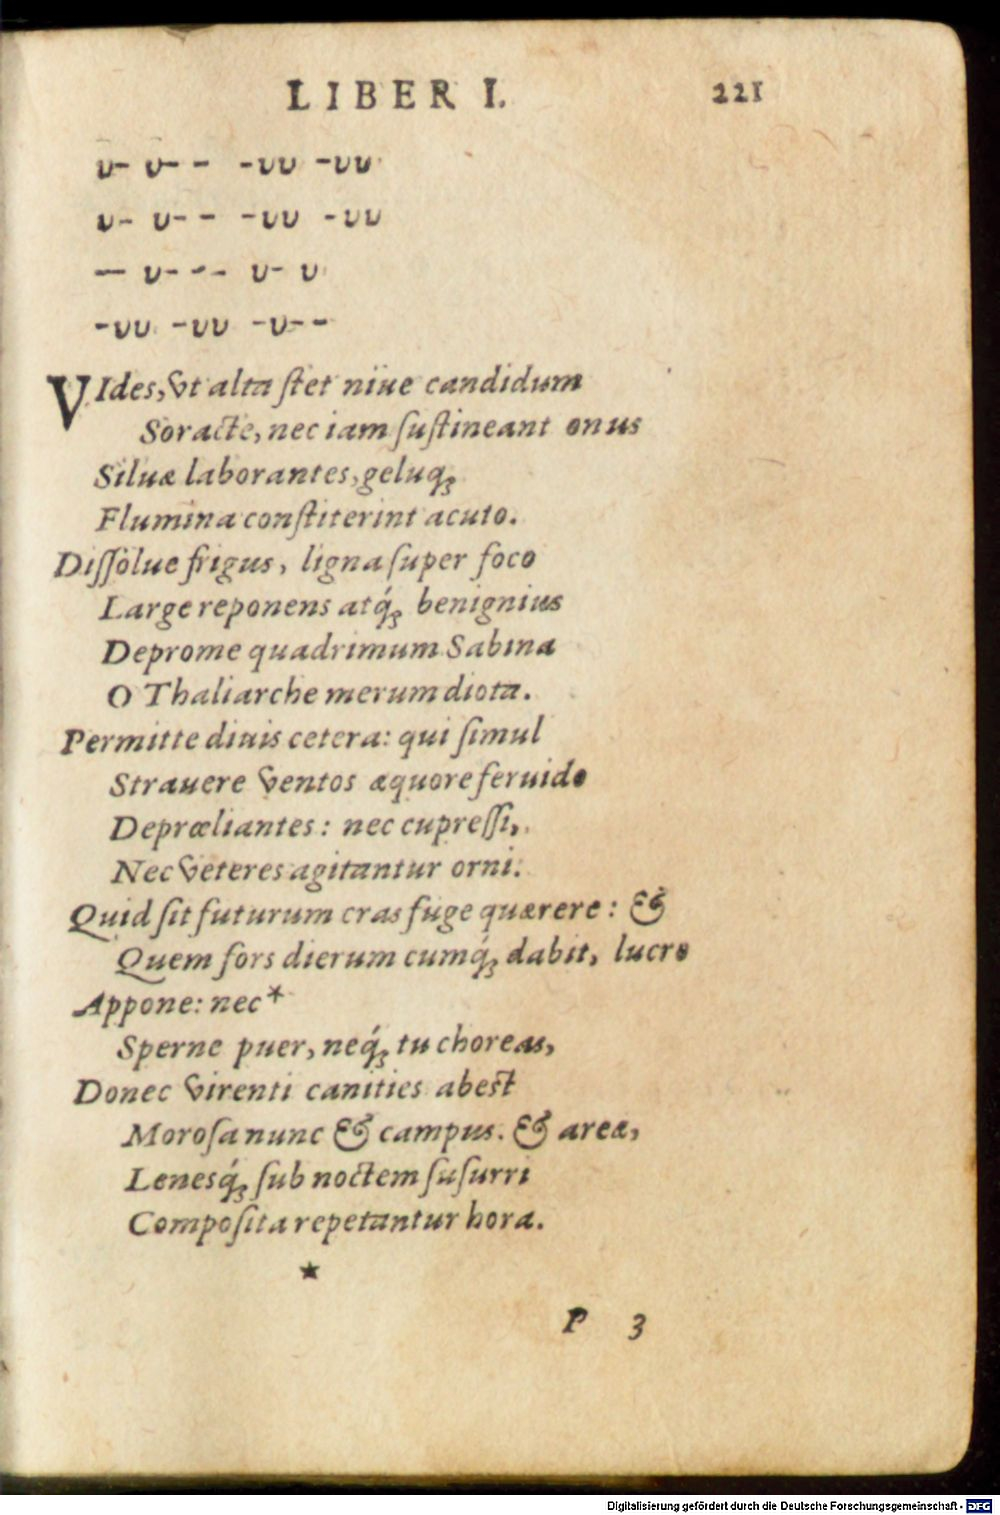 LIBER I. 221
υ- υ-- -υυ -υυ
υ- υ-- -υυ -υυ
— υ- -- υ- υ
-υυ -υυ -υ--
VIdes, vt alta ſtet niue candidum
Soracte, nec iam ſuſtineant onus
Siluæ laborantes, geluq́;
Flumina conſtiterint acuto.
Diſſolue frigus, ligna ſuper foco
Large reponens atq́; benignius
Deprome quadrimum Sabina
O Thaliarche merum diota.
Permitte diuis cetera: qui ſimul
Strauere ventos æquore feruido
Deprœliantes: nec cupreſſi,
Nec veteres agitantur orni.
Quid ſit futurum cras fuge quærere: &
Quem fors dierum cumq́; dabit, lucro
Appone: nec*
Sperne puer, neq́; tu choreas,
Donec virenti canities abest
Moroſa nunc & campus. & areæ,
Lenesq́; ſub noctem ſuſurri
Compoſita repetantur hora.
★
P 3
Digitalisierung gefördert durch die Deutsche Forschungsgemeinschaft - DFG